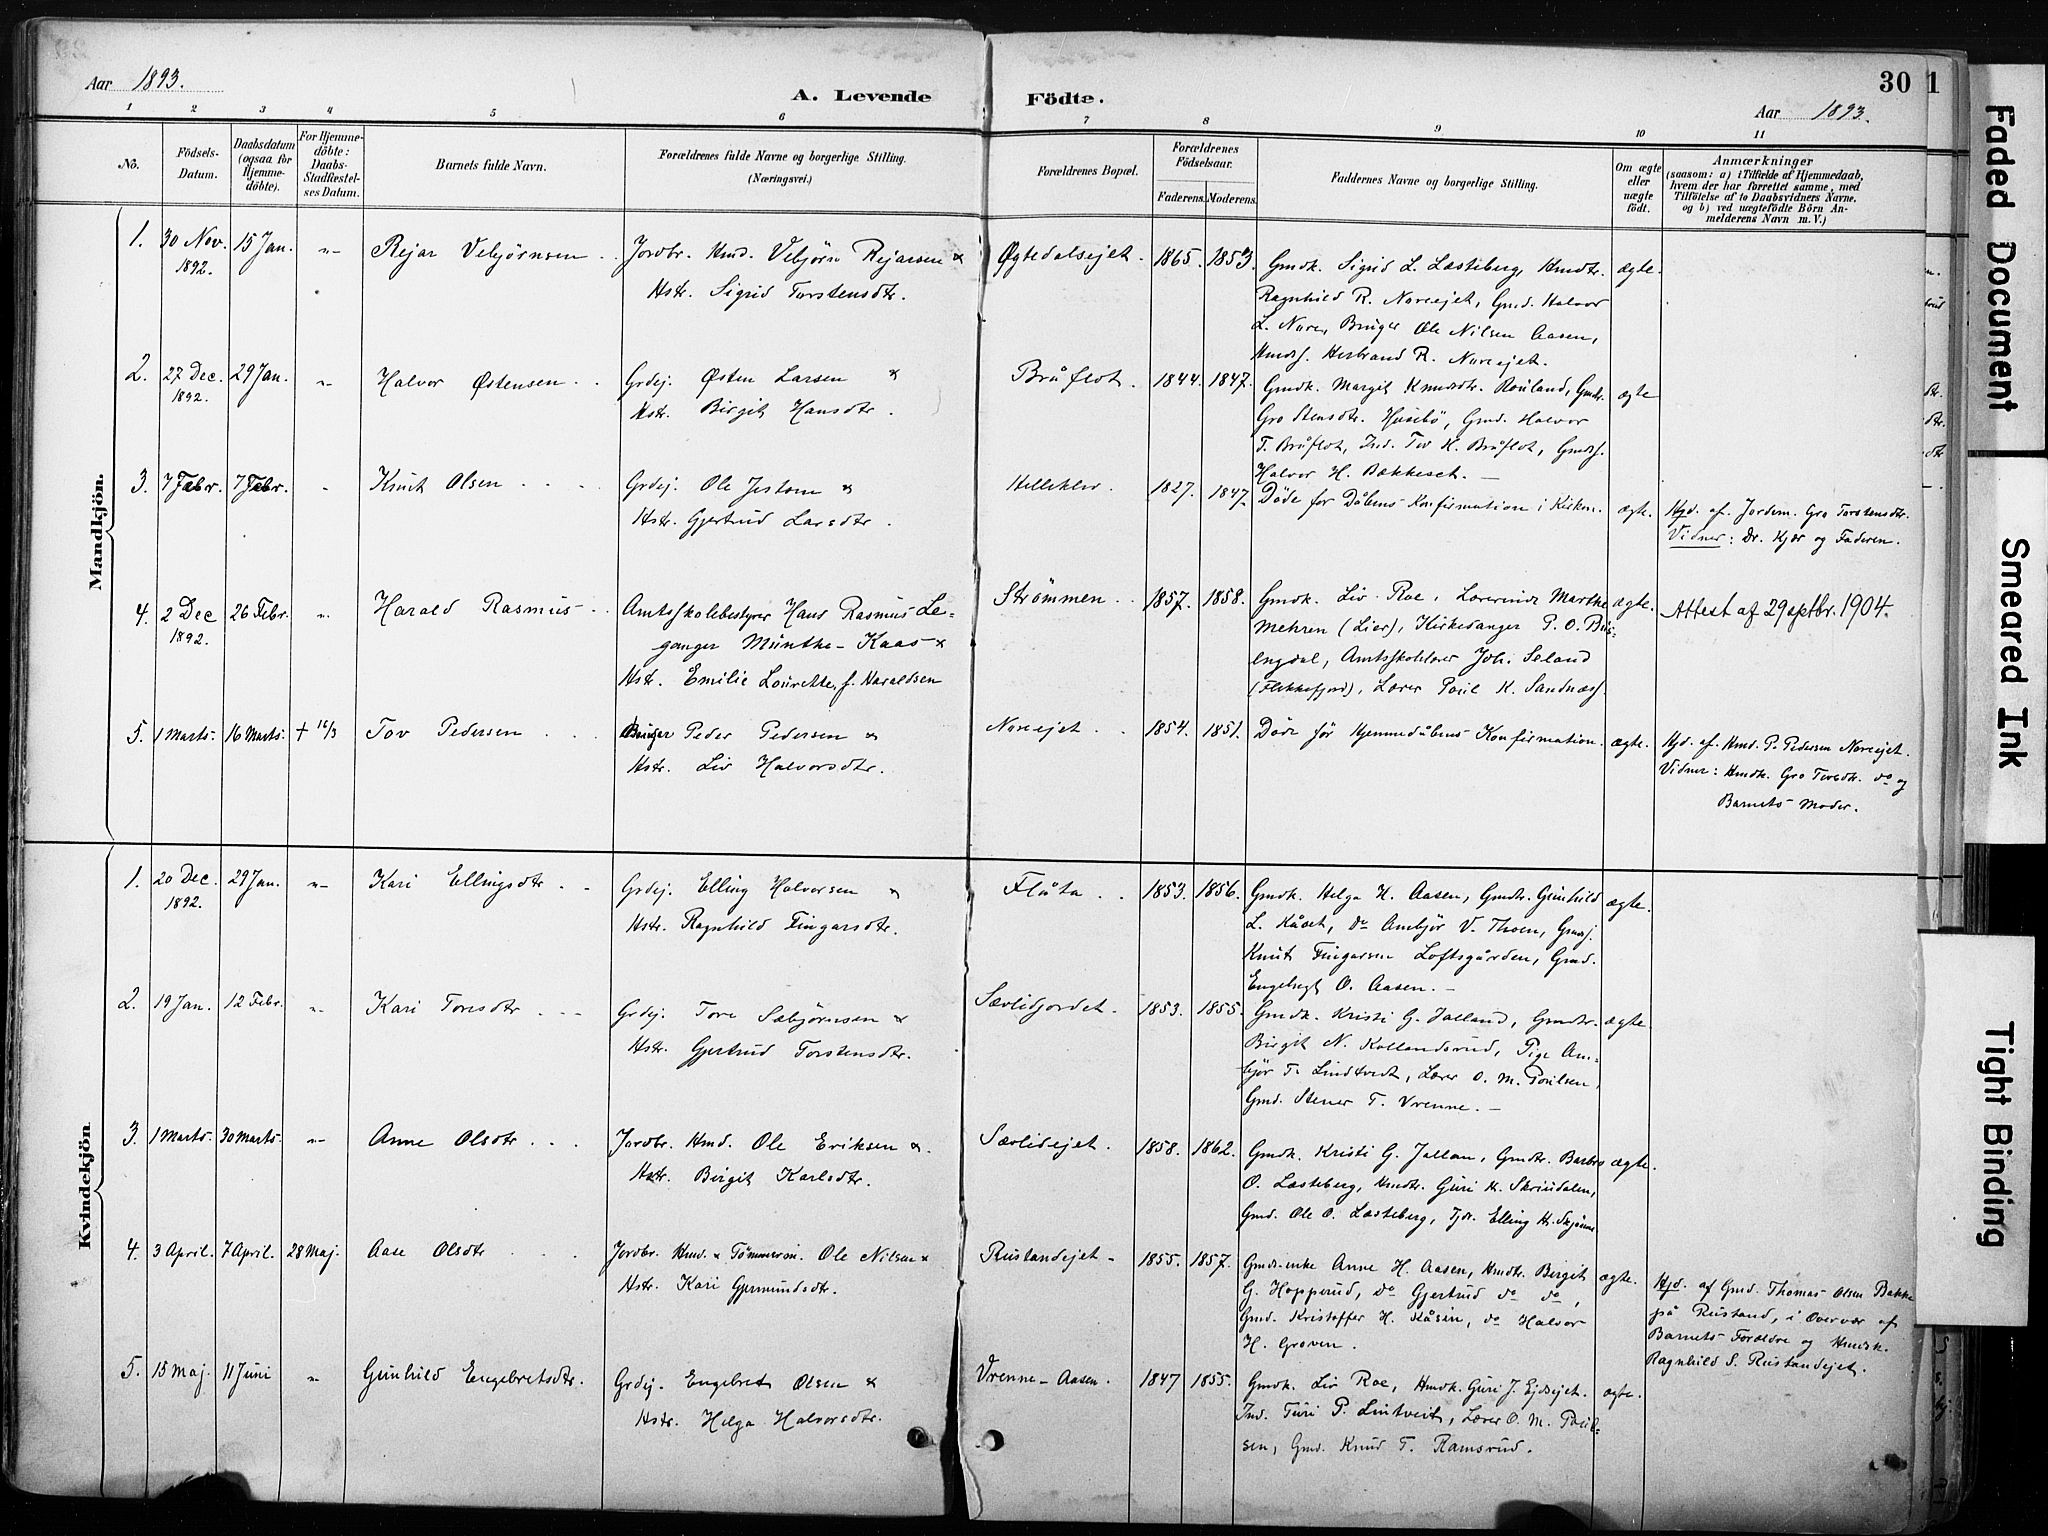 Aar 1893.
A. Levende Födte.
30
1
Aar 1893.
1 2 3 4 5 6 7 8 9 10 11
No.
Födsels-Datum.
Daabsdatum (ogsaa for Hjemme-döbte).
For Hjemme-döbte: Daabs-Stadfæstel-ses Datum.
Barnets fulde Navn.
Forældrenes fulde Navne og borgerlige Stilling.
(Næringsvei.)
Forældrenes Bopæl.
Forældrenes Födselsaar.
Faderens. Moderens.
Faddernes Navne og borgerlige Stilling.
Om ægte eller uægte födt.
Anmærkninger
(saasom: a) i Tilfælde af Hjemmedaab,
hvem der har forrettet samme, med
Tilföielse af to Daabsvidners Navne,
og b) ved uægtefödte Börn An-
melderens Navn m. V.)
Mandkjön.
1. 30 Nov. 1892. 15 Jan. " Rejar Vebjörnsen Jordbr. Hmd. Vebjörn Rejarsen &
Hstr. Sigrid Torstensdtr.
Øgtedalsejet. 1865. 1853. Gmdk. Sigrid L. Lasteberg, Hmdtr. ægte.
Ragnhild R. Noreejet, Gmd. Halvor
L. Nore, Bruger Ole Nilsen Aasen,
Hmds. Herbrand R. Noreejet.
2. 27 Dec. 1892. 29 Jan. " Halvor Østensen Grdej. Østen Larsen &
Hstr. Birgit Hansdtr.
Bruflot. 1844. 1847. Gmdk. Margit Knudsdtr. Rouland, Gmdtr. ægte
Gro Stensdtr. Husebö, Gmd. Halvor
T. Bruflot, Ind. Tov H. Bruflot, Gmds.
Halvor H. Bækkeset.
3. 7 Febr. 7 Febr. " Knut Olsen Grdej. Ole Jestom &
Hstr. Gjertrud Larsdtr.
1827. 1847. Döde för Dåbens Konfirmation i Kirken. ægte.
Hjd. af Jordem. Gro Torstensdtr.
Vidner: Dr. Hjör og Faderen.
4. 2 Dec 1892. 26 Febr. " Harald Rasmus Amtsskolebestyrer Hans Rasmus Le-
ganger Munthe-Kaas &
Hstr. Emilie Lourette, f. Haraldsen
Strömmen 1857. 1858. Gmdk. Liv Roe, Lærerinde Marthe ægte.
Mehren (Lier), Kirkesanger P. O. Bus-
lengdal, Amtsskolelærer Joh. Seland
(Flekkefjord), Lærer Poul K. Sandnæs.
Attest af 29 septbr. 1904.
5. 1 Marts. 16 Marts. † 16/3 Tov Pedersen Bruger Peder Pedersen &
Hstr. Liv Halvorsdtr.
Noreejet. 1854. 1851. Döde för Hjemmedåbens Konfirmation. ægte.
Hjd. af Hmd. P. Pedersen Noreejet.
Vidner: Hmdk. Gro Tovsdtr. do og
Barnets Moder.
Kvindekjön.
1. 20 Dec. 1892. 29 Jan. " Kari Ellingsdtr. Grdej. Elling Halvorsen &
Hstr. Ragnhild Fingarsdtr.
Flåta 1853. 1856. Gmdk. Helga H. Aasen, Gmdtr. Gunhild ægte.
L. Kåset, do Ambjör V. Thoen, Gmds.
Knut Fingarsen Loftsgården, Gmd.
Engebregt O. Aasen.
2. 19 Jan. 12 Febr. " Kari Toresdtr Grdej. Tore Sæbjörnsen &
Hstr. Gjertrud Torstensdtr.
Sævlidjordet. 1853. 1855. Gmdk. Kristi G. Jalland, Gmdtr. ægte.
Birgit N. Kollandsrud, Pige Am-
björ T. Lindtvedt, Lærer O. M. Poulsen,
Gmd. Stener T. Vrenne.
3. 1 Marts. 30 Marts. " Anne Olsdtr Jordbr. Hmd. Ole Eriksen &
Hstr. Birgit Karlsdtr.
Sævlidejet. 1858. 1862. Gmdk. Kristi G. Jallan, Gmdtr. Barbro ægte.
O. Lasteberg, Hmdtr. Guri H. Skrindalen,
Gmd. Ole O. Lasteberg, Tjdr. Elling H. Skjönne
4. 3 April. 7 April. 28 Maj. Aase Olsdtr Jordbr. Hmd. & Tömmerm. Ole Nilsen &
Hstr. Kari Gjermundsdtr.
Rustandejet 1855. 1857. Gmds-enke Anne H. Aasen, Hmdtr. Birgit ægte.
G. Hopperud, do Gjertrud do do,
Gmd. Kristoffer H. Kåsin, do Halvor
H. Groven.
Hjd. af Gmd. Thomas Olsen Bakke
på Rustand, i Overvær af
Barnets Forældre og Hmdk.
Ragnhild S. Rustandejet.
5. 15 Maj. 11 Juni " Gunhild Engebretsdtr. Grdej. Engebret Olsen &
Hstr. Helga Halvorsdtr.
Vrenne-Aasen. 1847 1855. Gmdk. Liv Roe, Hmdk. Guri J. Ejdsejet. ægte.
Ind. Turi P. Lintveit, Lærer O. M. Poul-
sen, Gmd. Knud T. Ramsrud.
Faded Document
Smeared Ink
Tight Binding